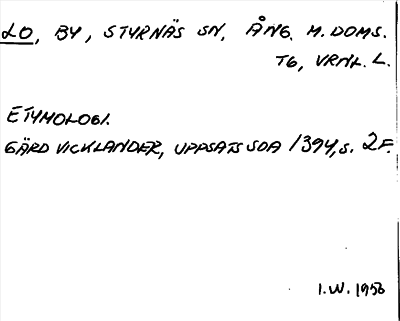 LO, BY, STYRNÄS SN, ÅNG. M. DOMS.
TG, VRNL. L.
ETYMOLOGI.
GÄRD VICKLANDER, UPPSATS SOA 1394, S. 2 F.
I.W. 1956